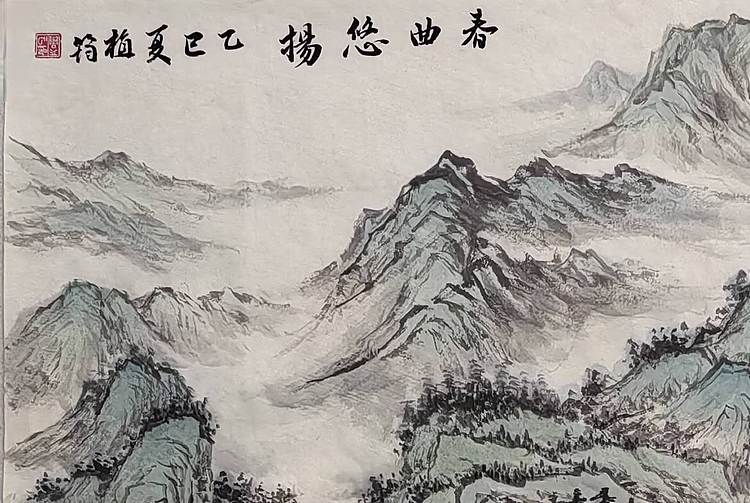 春曲悠揚 乙巳夏植筠